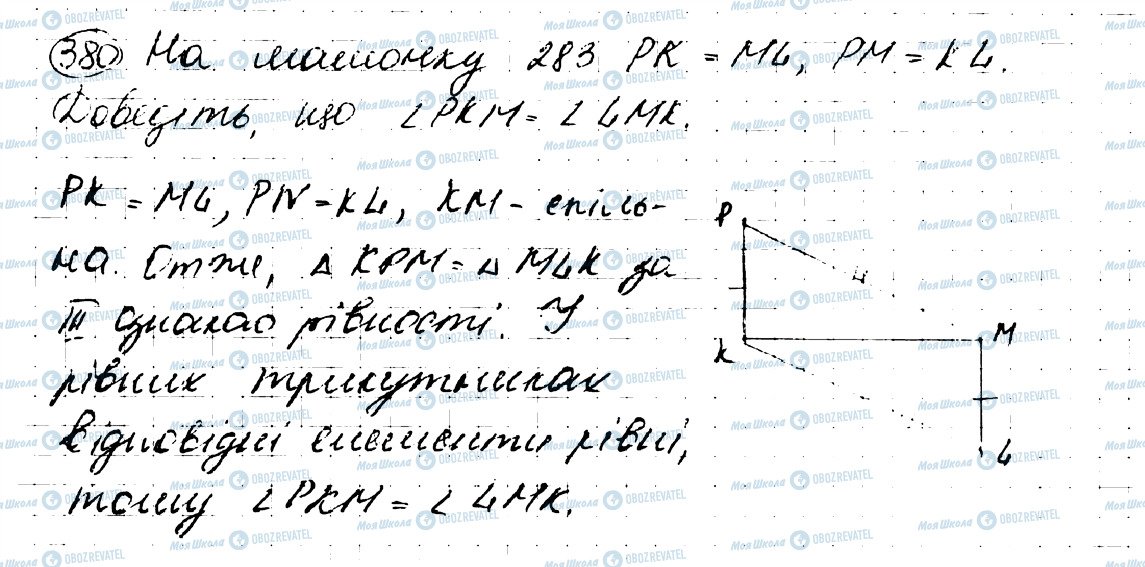 380 На малюнку 283 PK = ML, PM = KL.
Доведіть, що ∠PKM = ∠LMK.
PK = ML, PM = KL, KM - спіль-
на. Отже, Δ KPM = Δ MLK за
III ознакою рівності. У
рівних трикутниках
відповідні елементи рівні,
тому ∠PKM = ∠LMK.
P
K
M
L